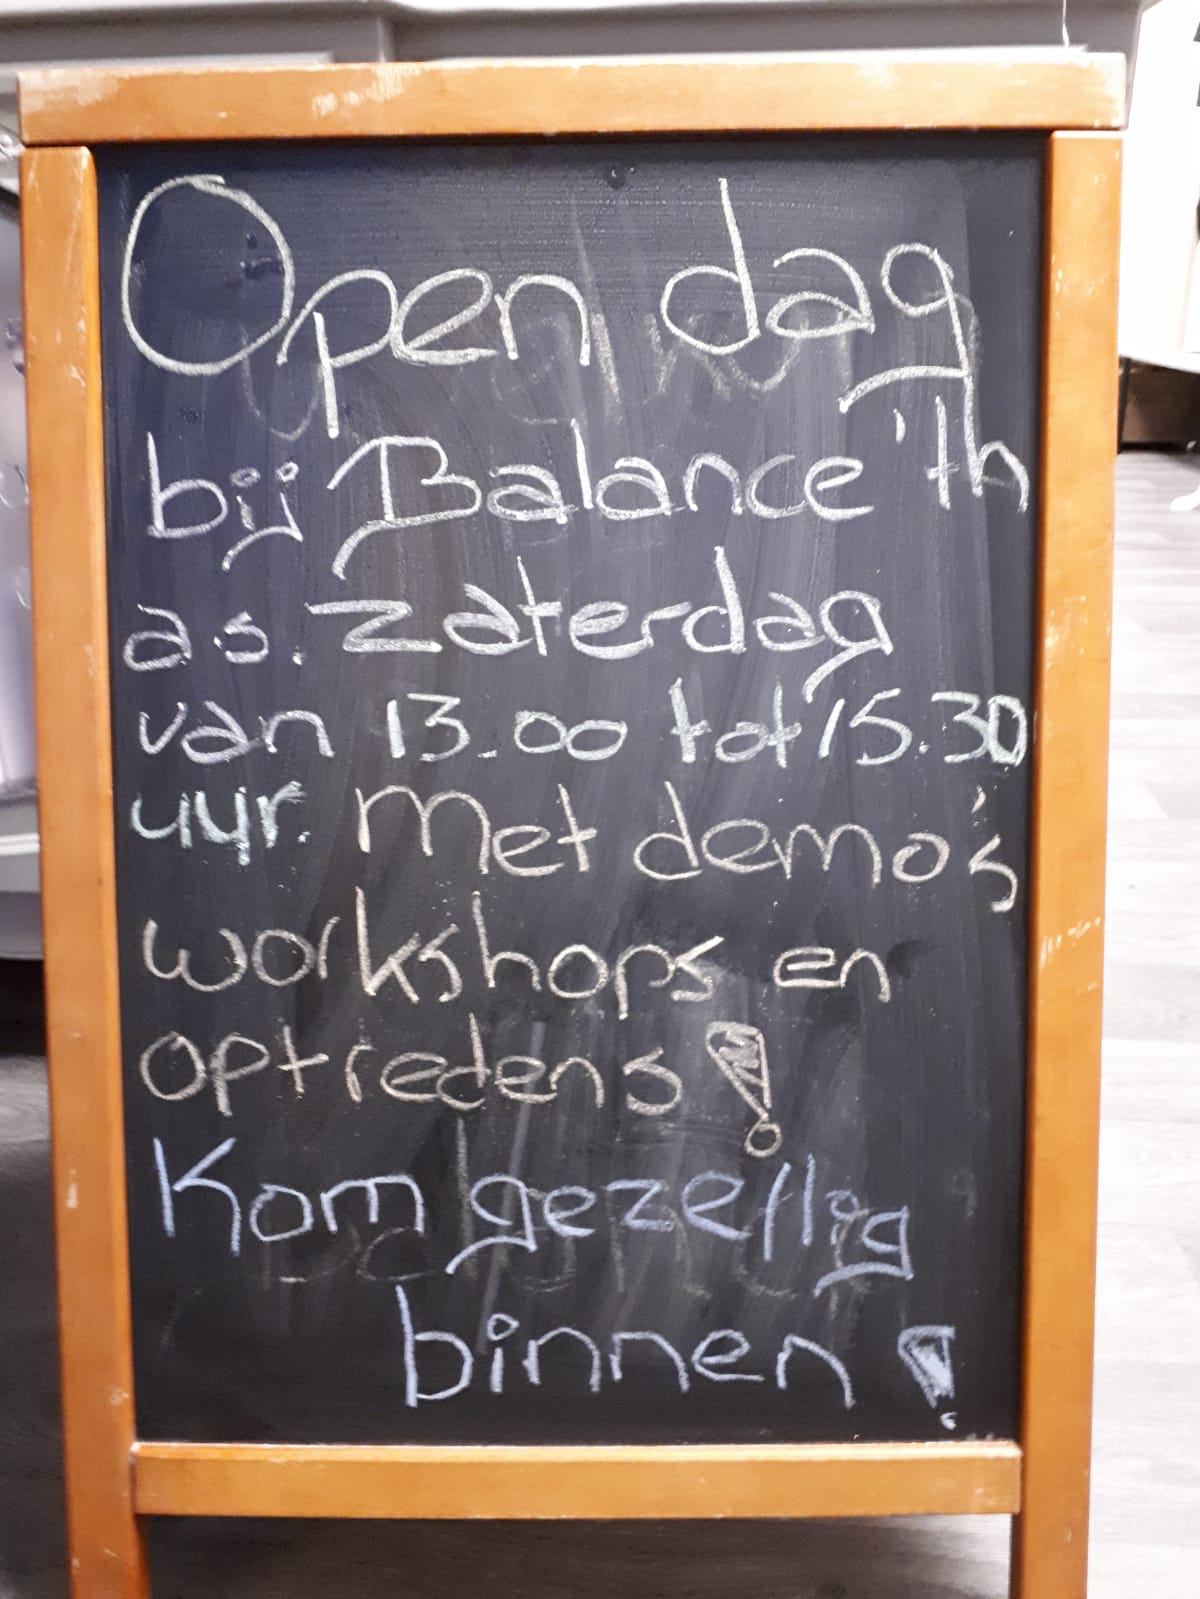 Open dag
bij Balance 'th
a.s. Zaterdag
van 13.00 tot 15.30
uur. Met demo's
workshops en
optredens!
Kom gezellig
binnen!